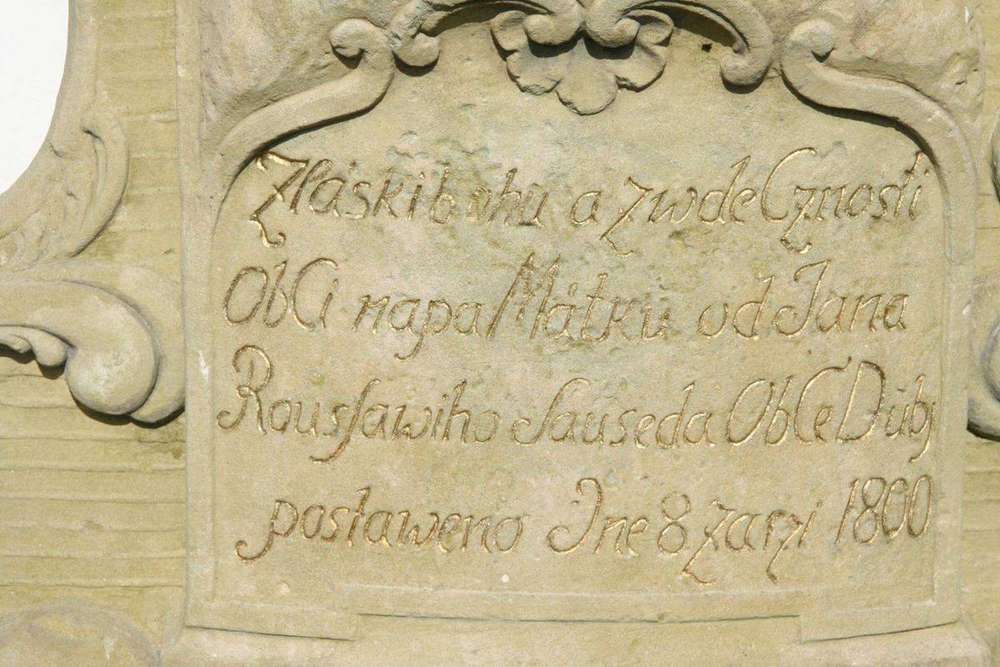 Zláski bohu a zwdeCznosti
ObCi napaMátku od Jana
Rousławiho Sauseda ObCe Dubj
postaweno Dne 8 zarzi 1800